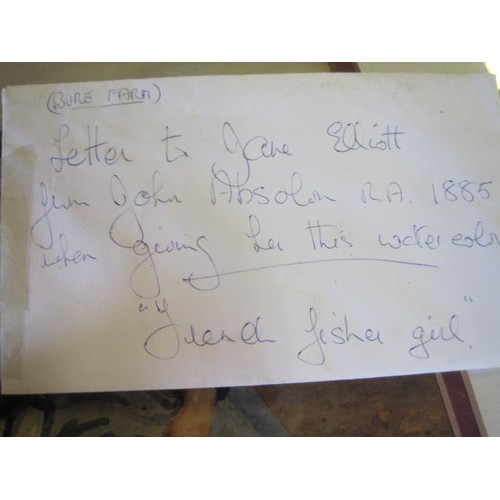 (BURE FARM)
Letter to Jane Elliott
from John Absolon R.A. 1885
when giving her this watercolor
"French fisher girl"